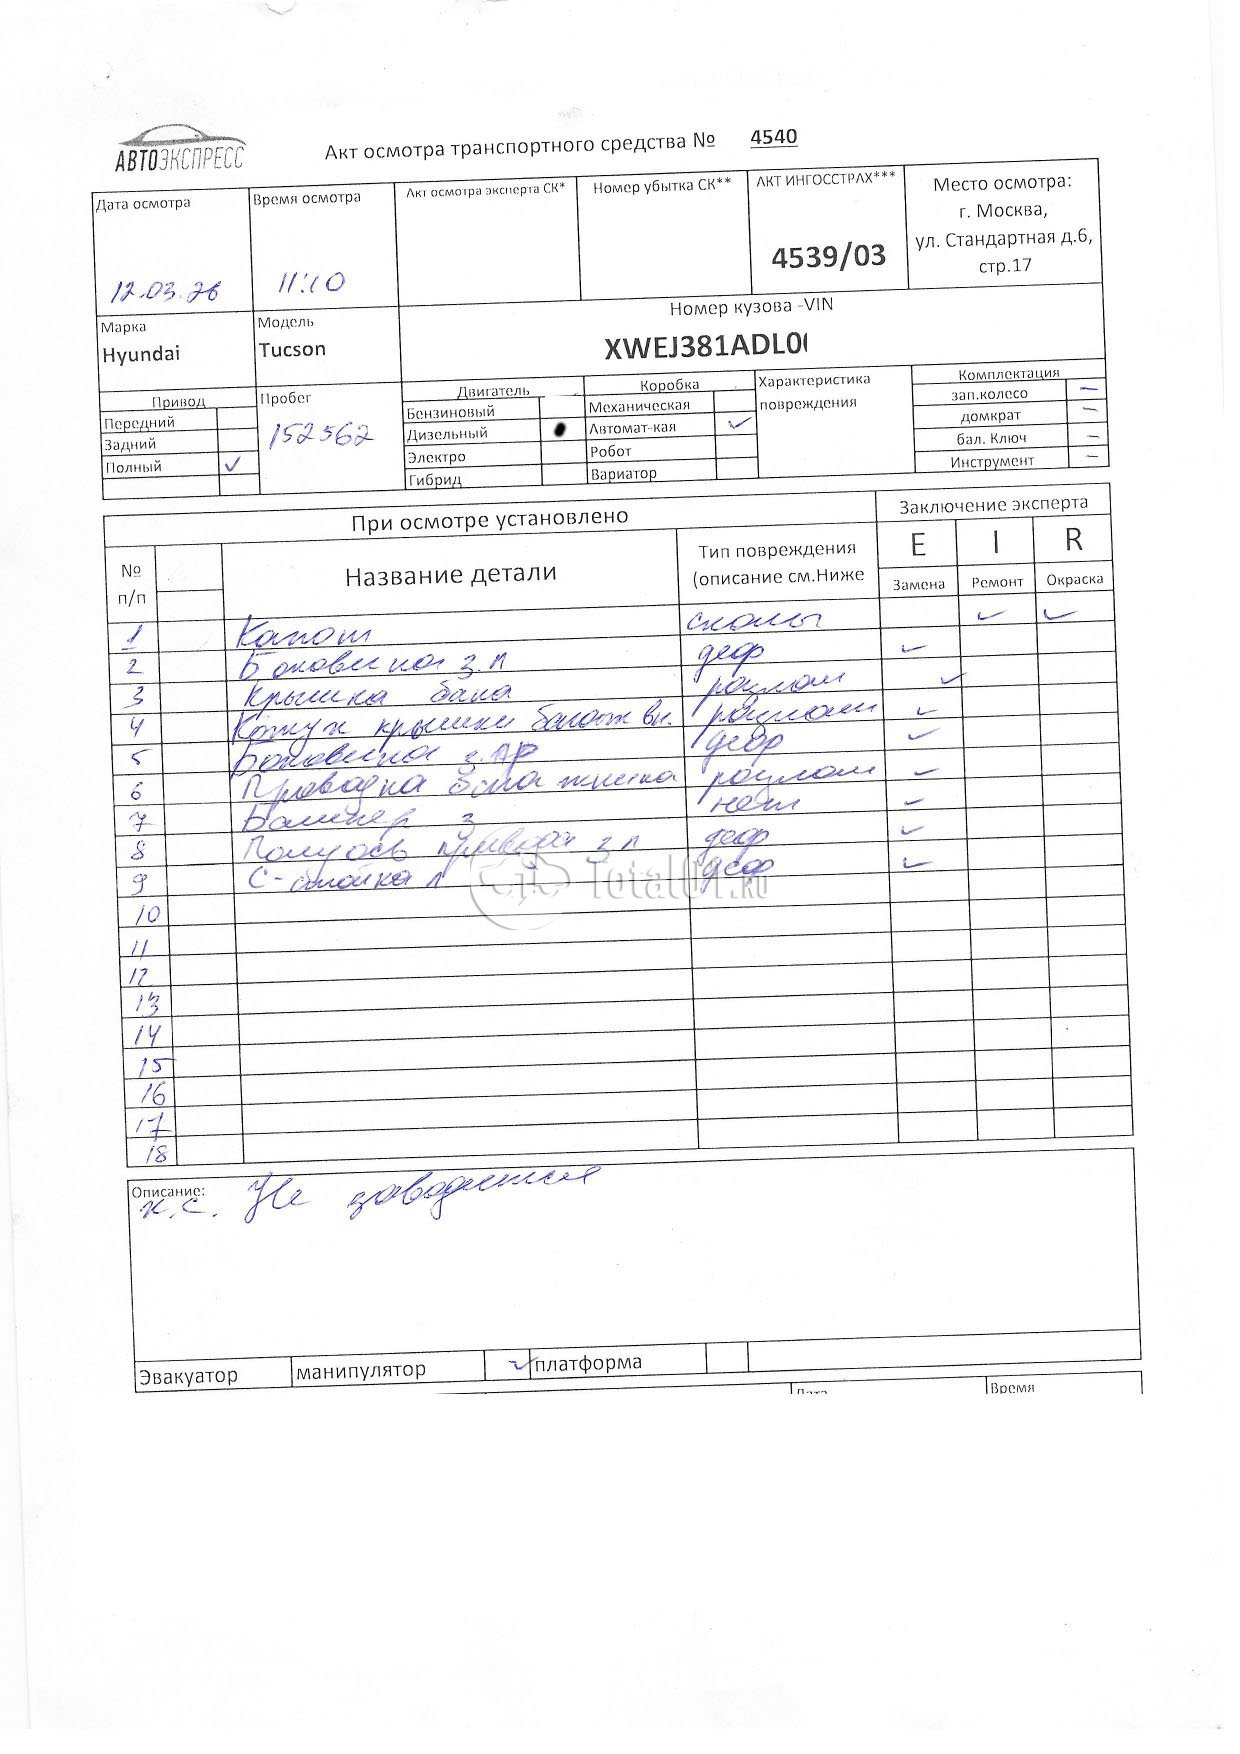 АВТОЭКСПРЕСС
Акт осмотра транспортного средства № 4540
Дата осмотра
12.03.26
Время осмотра
11:10
Акт осмотра эксперта СК*
Номер убытка СК**
АКТ ИНГОССТРАХ***
4539/03
Место осмотра:
г. Москва,
ул. Стандартная д.6,
стр.17
Марка
Hyundai
Модель
Tucson
Номер кузова -VIN
XWEJ381ADL0
Привод
Передний
Задний
Полный ✓
Пробег
152562
Двигатель
Бензиновый
Дизельный
Электро
Гибрид
Коробка
Механическая
Автомат-кая ✓
Робот
Вариатор
Характеристика
повреждения
Комплектация
зап.колесо –
домкрат –
бал. Ключ –
Инструмент –
При осмотре установлено
Заключение эксперта
№
п/п
Название детали
Тип повреждения
(описание см.Ниже
E I R
Замена Ремонт Окраска
1 Капот сколы ✓ ✓
2 Боковина з.л деф ✓
3 Крышка бака разлом ✓
4 Кожух крышки багаж вн. разлом ✓
5 Боковина з.пр деф ✓
6 Проводка багажника разлом ✓
7 Бампер з нет ✓
8 Полуось з л деф ✓
9 С-стойка л деф ✓
10
11
12
13
14
15
16
17
18
Total01.RU
Описание:
к.с. Не заводится
Эвакуатор
манипулятор ✓
платформа
Дата
Время